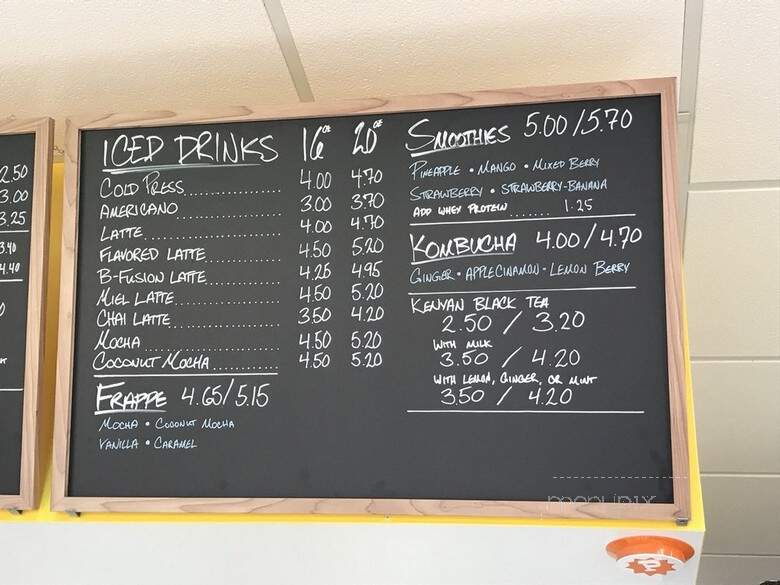 2.50
3.00
3.25
3.40
4.40
ICED DRINKS 16oz 20oz
COLD PRESS 4.00 4.70
AMERICANO 3.00 3.70
LATTE 4.00 4.70
FLAVORED LATTE 4.50 5.20
B-FUSION LATTE 4.25 4.95
MIEL LATTE 4.50 5.20
CHAI LATTE 3.50 4.20
MOCHA 4.50 5.20
COCONUT MOCHA 4.50 5.20
FRAPPE 4.65/5.15
MOCHA • COCONUT MOCHA
VANILLA • CARAMEL
SMOOTHIES 5.00/5.70
PINEAPPLE • MANGO • MIXED BERRY
STRAWBERRY • STRAWBERRY-BANANA
ADD WHEY PROTEIN ....... 1.25
KOMBUCHA 4.00/4.70
GINGER • APPLECINAMON • LEMON BERRY
KENYAN BLACK TEA
2.50 / 3.20
WITH MILK
3.50 / 4.20
WITH LEMON, GINGER, OR MINT
3.50 / 4.20
menupix